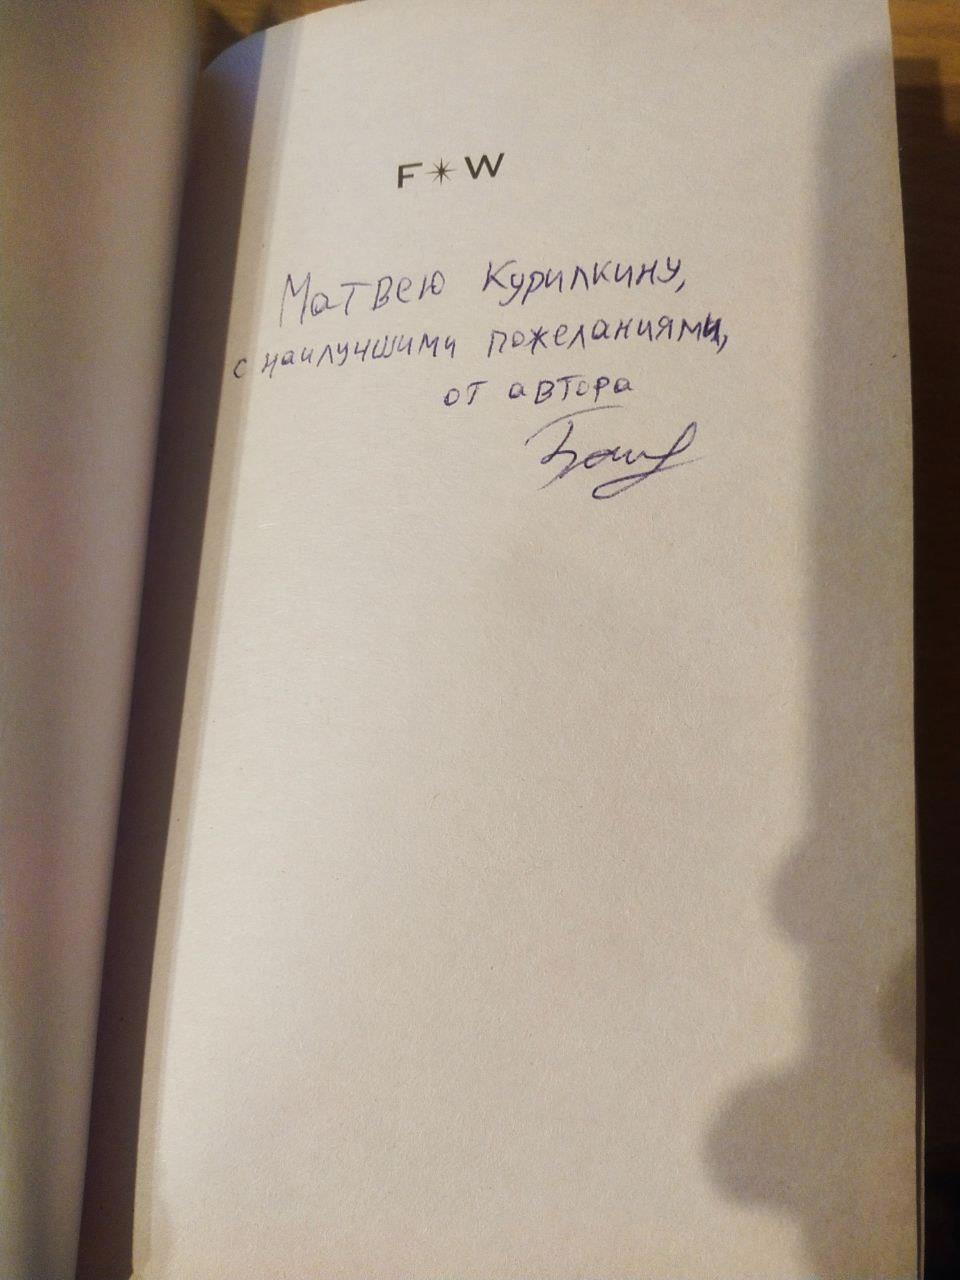 F✴W
Матвею Курилкину,
с наилучшими пожеланиями,
от автора